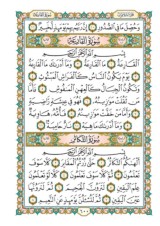 وَحُصِّلَ مَا فِي الصُّدُورِ ۝ إِنَّ رَبَّهُم بِهِمْ يَوْمَئِذٍ لَّخَبِيرٌ ۝
سُورَةُ الْقَارِعَةِ
بِسْمِ اللَّهِ الرَّحْمَٰنِ الرَّحِيمِ
الْقَارِعَةُ ۝ مَا الْقَارِعَةُ ۝ وَمَا أَدْرَاكَ مَا الْقَارِعَةُ ۝
يَوْمَ يَكُونُ النَّاسُ كَالْفَرَاشِ الْمَبْثُوثِ ۝
وَتَكُونُ الْجِبَالُ كَالْعِهْنِ الْمَنفُوشِ ۝ فَأَمَّا
مَن ثَقُلَتْ مَوَازِينُهُ ۝ فَهُوَ فِي عِيشَةٍ رَّاضِيَةٍ ۝
وَأَمَّا مَنْ خَفَّتْ مَوَازِينُهُ ۝ فَأُمُّهُ هَاوِيَةٌ ۝
وَمَا أَدْرَاكَ مَا هِيَهْ ۝ نَارٌ حَامِيَةٌ ۝
سُورَةُ التَّكَاثُرِ
بِسْمِ اللَّهِ الرَّحْمَٰنِ الرَّحِيمِ
أَلْهَاكُمُ التَّكَاثُرُ ۝ حَتَّىٰ زُرْتُمُ الْمَقَابِرَ ۝ كَلَّا سَوْفَ
تَعْلَمُونَ ۝ ثُمَّ كَلَّا سَوْفَ تَعْلَمُونَ ۝ كَلَّا لَوْ تَعْلَمُونَ
عِلْمَ الْيَقِينِ ۝ لَتَرَوُنَّ الْجَحِيمَ ۝ ثُمَّ لَتَرَوُنَّهَا
عَيْنَ الْيَقِينِ ۝ ثُمَّ لَتُسْأَلُنَّ يَوْمَئِذٍ عَنِ النَّعِيمِ ۝
٦٠٠